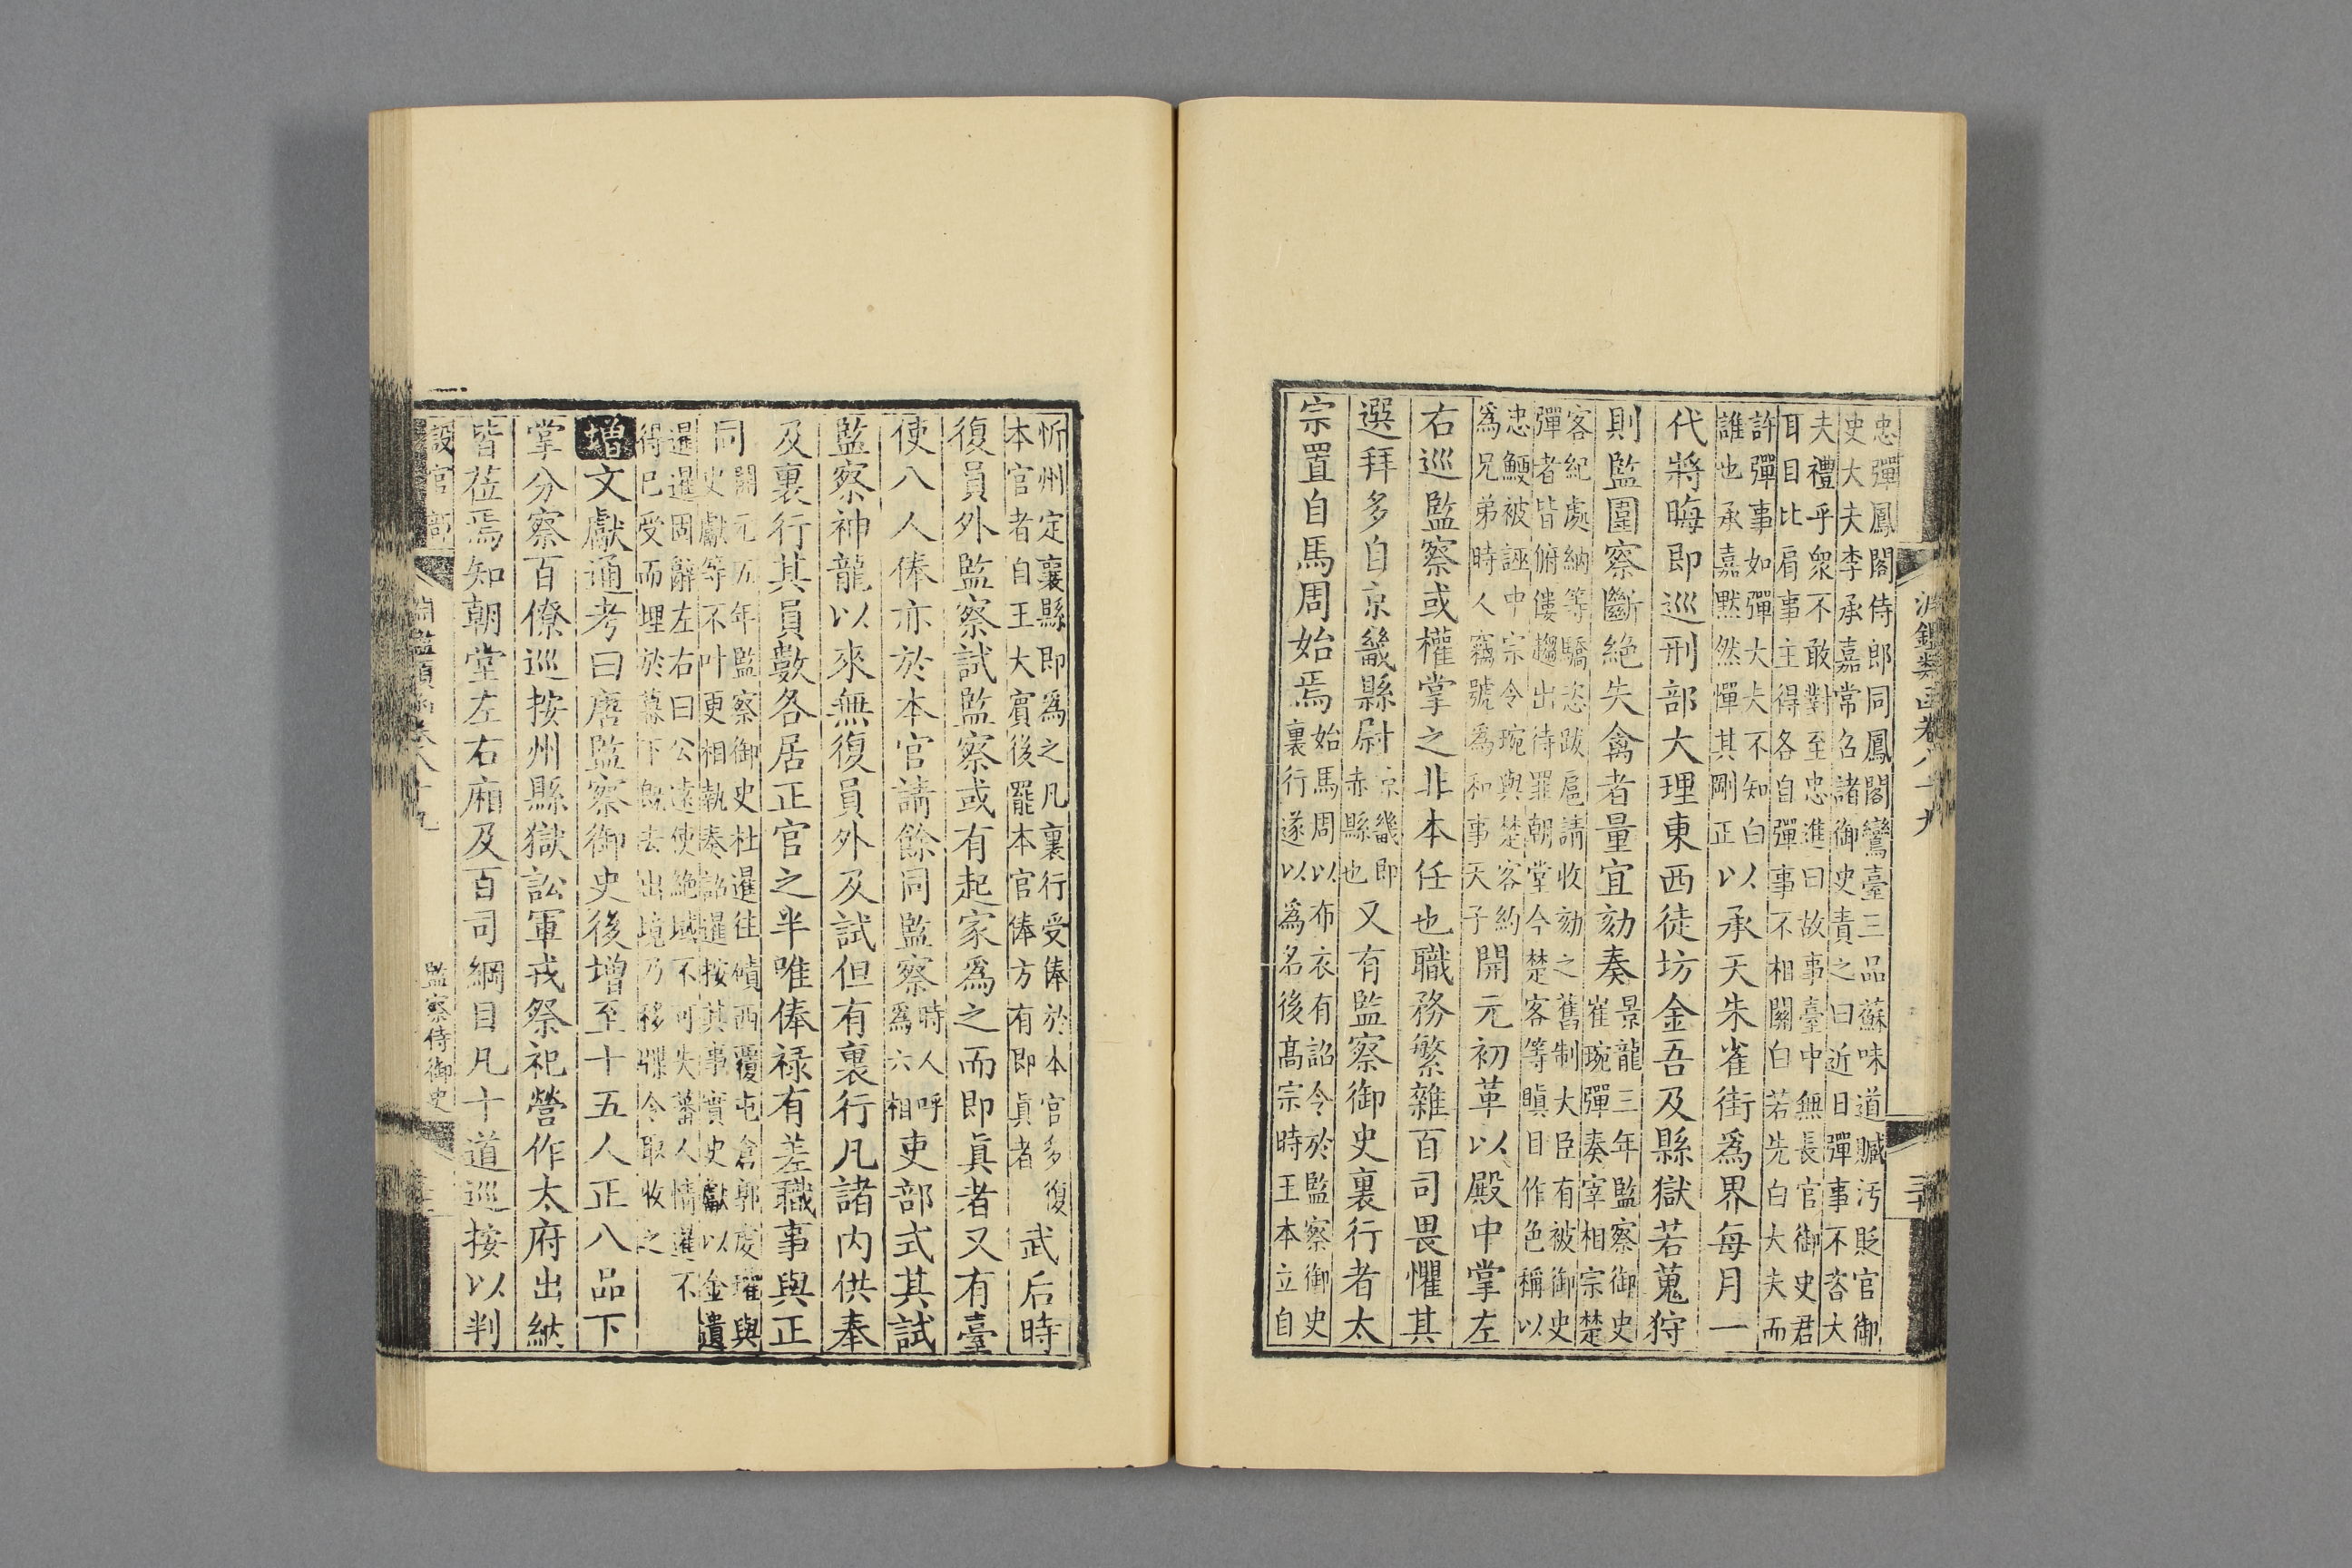 淵鑑類函卷八十九
忠彈鳳閣侍郎同鳳閣鸞臺三品蘇味道贓汚貶官御
史大夫李承嘉常召諸御史責之曰近日彈事不咨大
夫禮乎衆不敢對至忠進曰故事臺中無長官御史君
耳目比肩事主得各自彈事不相關白若先白大夫而
許彈事如彈大夫不知白
誰也承嘉黙然憚其剛正
以承天朱雀街爲界每月一
代將晦即巡刑部大理東西徒坊金吾及縣獄若蒐狩
則監圍察斷絶失禽者量宜劾奏
景龍三年監察御史
崔琬彈奏宰相宗楚
客紀處納等驕恣跋扈請收劾之舊制大臣有被御史
彈者皆俯僂趨出待罪朝堂今楚客等瞋目作色稱以
忠鯁被誣中宗令琬與楚客約
爲兄弟時人竊號爲和事天子
開元初革以殿中掌左
右巡監察或權掌之非本任也職務繁雜百司畏懼其
選拜多自京畿縣尉
京畿即
赤縣也
又有監察御史裏行者太
宗置自馬周始焉
始馬周以布衣有詔令於監察御史
裏行遂以爲名後髙宗時王本立自
忻州定襄縣即爲之凡裏行受俸於本官多復
本官者自王大賓後罷本官俸方有即眞者
武后時
復員外監察試監察或有起家爲之而即眞者又有臺
使八人俸亦於本官請餘同監察
時人呼
爲六相
吏部式其試
監察神龍以來無復員外及試但有裏行凡諸内供奉
及裏行其員數各居正官之半唯俸禄有差職事與正
同
開元五年監察御史杜暹往磧西覆屯倉郭虔瓘與
史獻等不叶更相執奏詔暹按其事實史獻以金遺
暹暹固辭左右曰公遠使絶域不可失蕃人情暹不
得已受而埋於幕下旣去出境乃移牒令取收之
增文獻通考曰唐監察御史後增至十五人正八品下
掌分察百僚巡按州縣獄訟軍戎祭祀營作太府出納
皆莅焉知朝堂左右廂及百司綱目凡十道巡按以判
設官部
淵鑑類函卷八十九
監察侍御史